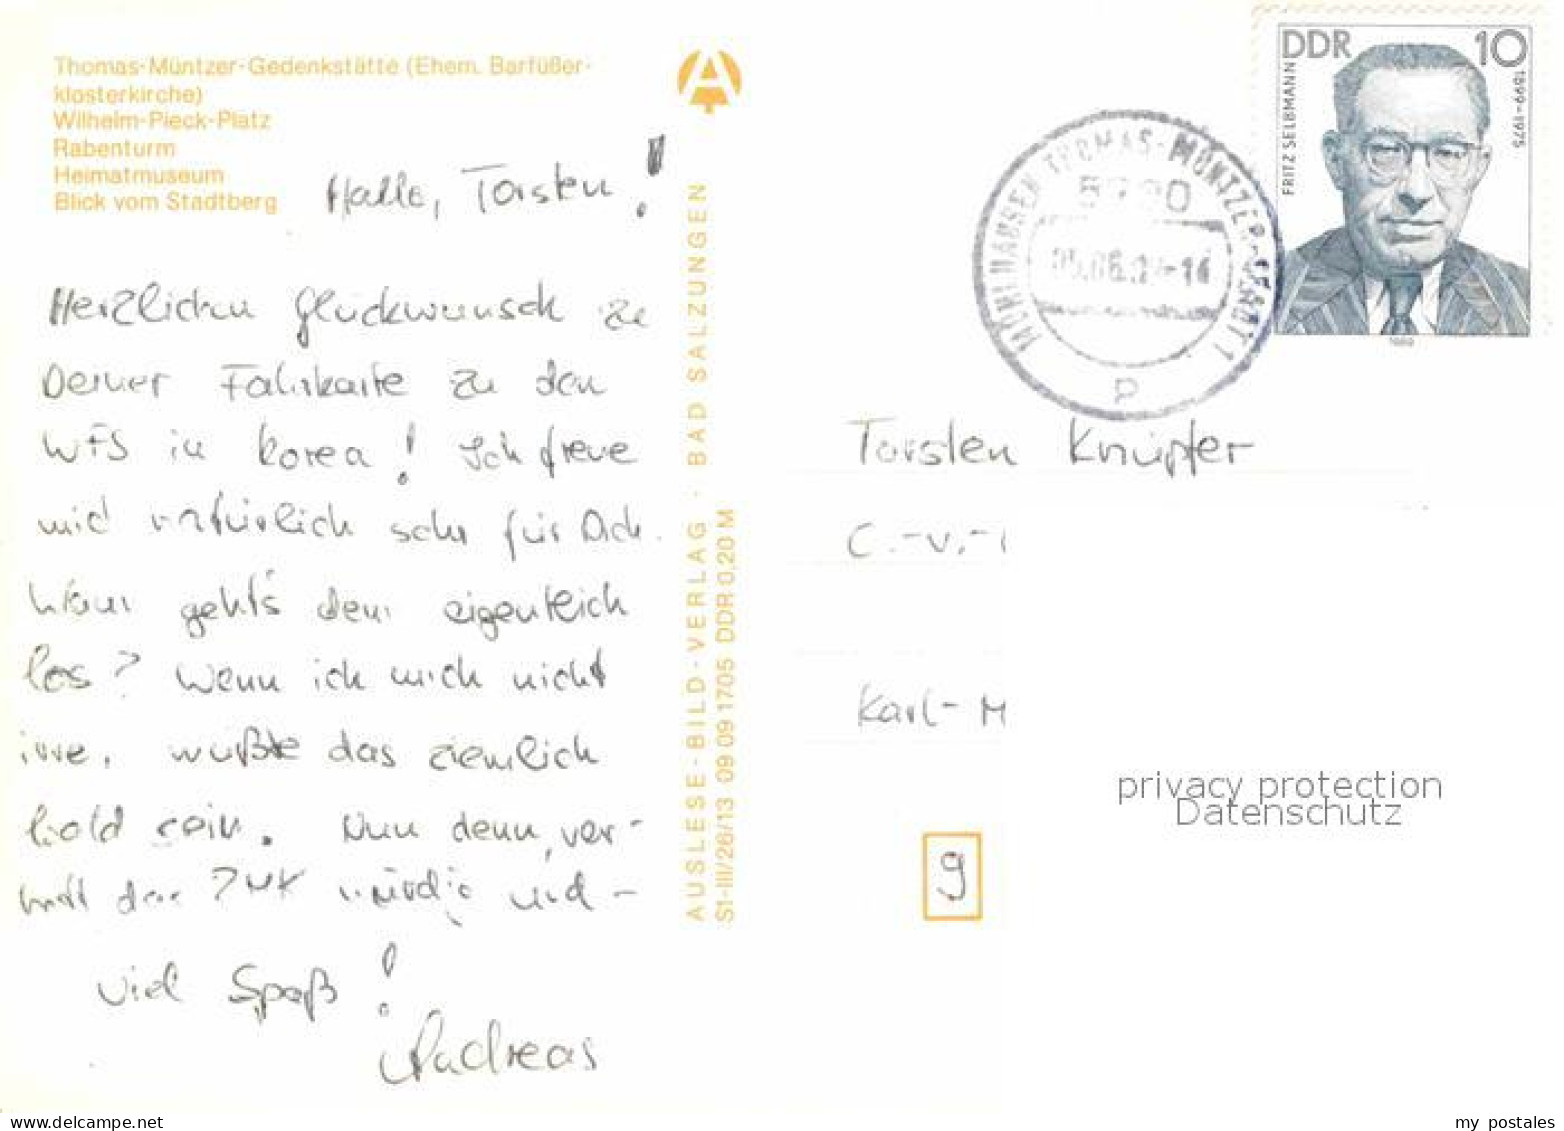 Thomas-Müntzer-Gedenkstätte (Ehem. Barfüßer-
klosterkirche)
Wilhelm-Pieck-Platz
Rabenturm
Heimatmuseum
Blick vom Stadtberg
Hallo, Torsten!
Herzlichen Glückwunsch zu
Deiner Fahrkarte zu den
WFS in Korea! Ich freue
mich natürlich sehr für Dich.
Wann geht's denn eigentlich
los? Wenn ich mich nicht
irre, müßte das ziemlich
bald sein. Nun denn, ver-
und -
viel Spaß!
Andreas
AUSLESE-BILD-VERLAG · BAD SALZUNGEN
S1-III/26/13 09 09 1705 DDR 0,20 M
DDR 10
FRITZ SELBMANN
1899-1975
MÜHLHAUSEN THOMAS-MÜNTZER-STADT 1
P
Torsten Knüpfer
C.-v.-
Karl-M
privacy protection
Datenschutz
9
my postales